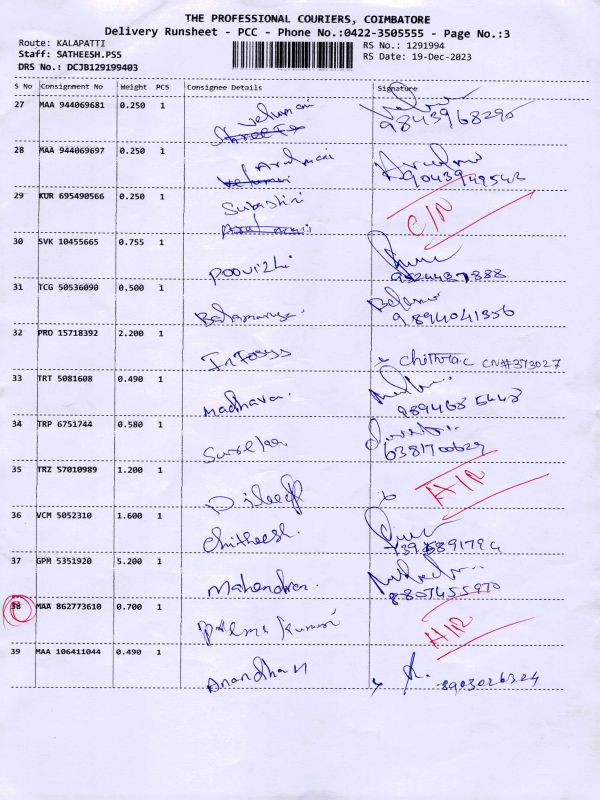 THE PROFESSIONAL COURIERS, COIMBATORE
Delivery Runsheet - PCC - Phone No.:0422-3505555 - Page No.:3
Route: KALAPATTI
Staff: SATHEESH.PSS
DRS No.: DCJB129199403
RS No.: 1291994
RS Date: 19-Dec-2023
S No Consignment No Weight PCS Consignee Details Signature
27 MAA 944069681 0.250 1
9843968290
28 MAA 944069697 0.250 1
9043949543
29 KUR 695490566 0.250 1
Subashini
C/N
30 SVK 10455665 0.755 1
Poovizhi
31 TCG 50536090 0.500 1
9894041356
32 PRO 15718392 2.200 1
Infosys
Chithra.C CN#373027
33 TRT 5081608 0.490 1
Madhavan.
9894685448
34 TRP 6751744 0.580 1
6381700629
35 TRZ 57010989 1.200 1
36 VCM 5052310 1.600 1
Chitheesh.
37 GPM 5351920 5.200 1
Mahendran.
8807455970
38 MAA 862773610 0.700 1
39 MAA 106411044 0.490 1
Anandhan
8903026324